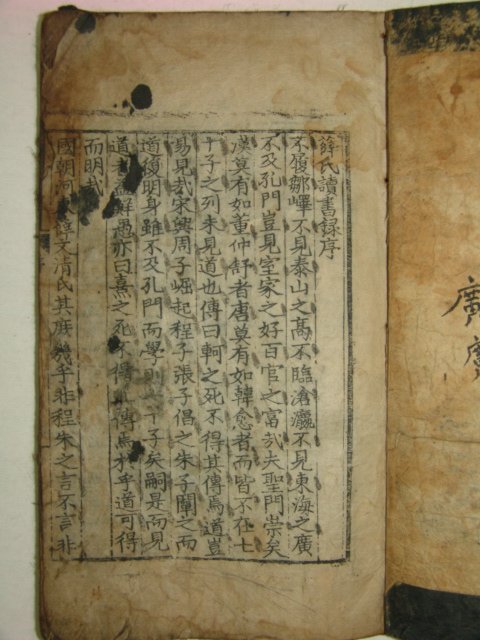 薛氏讀書錄序
不履鄒嶧不見泰山之高不臨滄瀛不見東海之廣
不及孔門豈見室家之好百官之富哉夫聖門崇矣
漢莫有如董仲舒者唐莫有如韓愈者而皆不在七
十子之列未見道也傳曰軻之死不得其傳焉道豈
易見哉宋興周子崛起程子張子倡之朱子闡之而
道復明身雖不及孔門而學則七十子矣嗣是而見
道者益鮮愚亦曰熹之死不得其傳焉於乎道可得
而明哉
國朝河 文清氏其庶幾乎非程朱之言不言非
廣